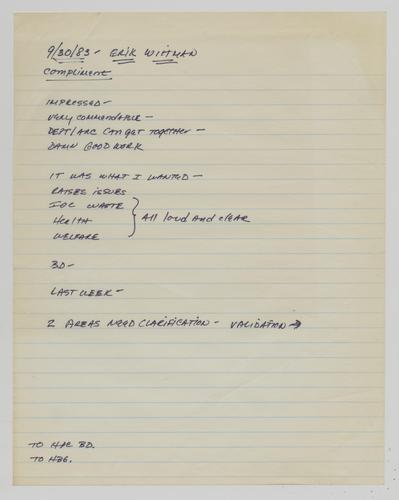 9/30/83 - ERIK WITTMAN
COMPLIMENT
IMPRESSED -
VERY COMMENDABLE -
DEPT/ARC CAN get together -
DAMN GOOD WORK
IT WAS WHAT I WANTED -
RAISES ISSUES
WASTE
HEALTH
WELFARE
All loud AND clear
BD -
LAST WEEK -
2 AREAS NEED CLARIFICATION - VALIDATION →
TO BD.
TO